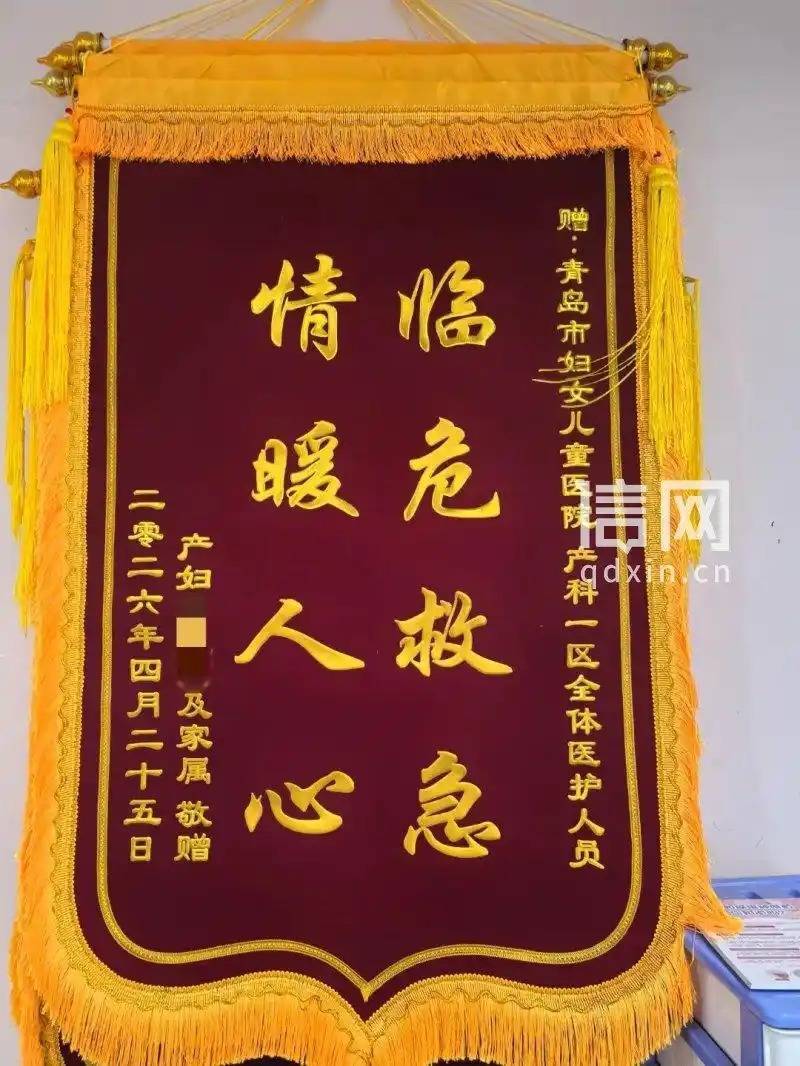 赠：青岛市妇女儿童医院 产科一区全体医护人员
临危救急
情暖人心
产妇 及家属 敬赠
二零二六年四月二十五日
信网
qdxin.cn